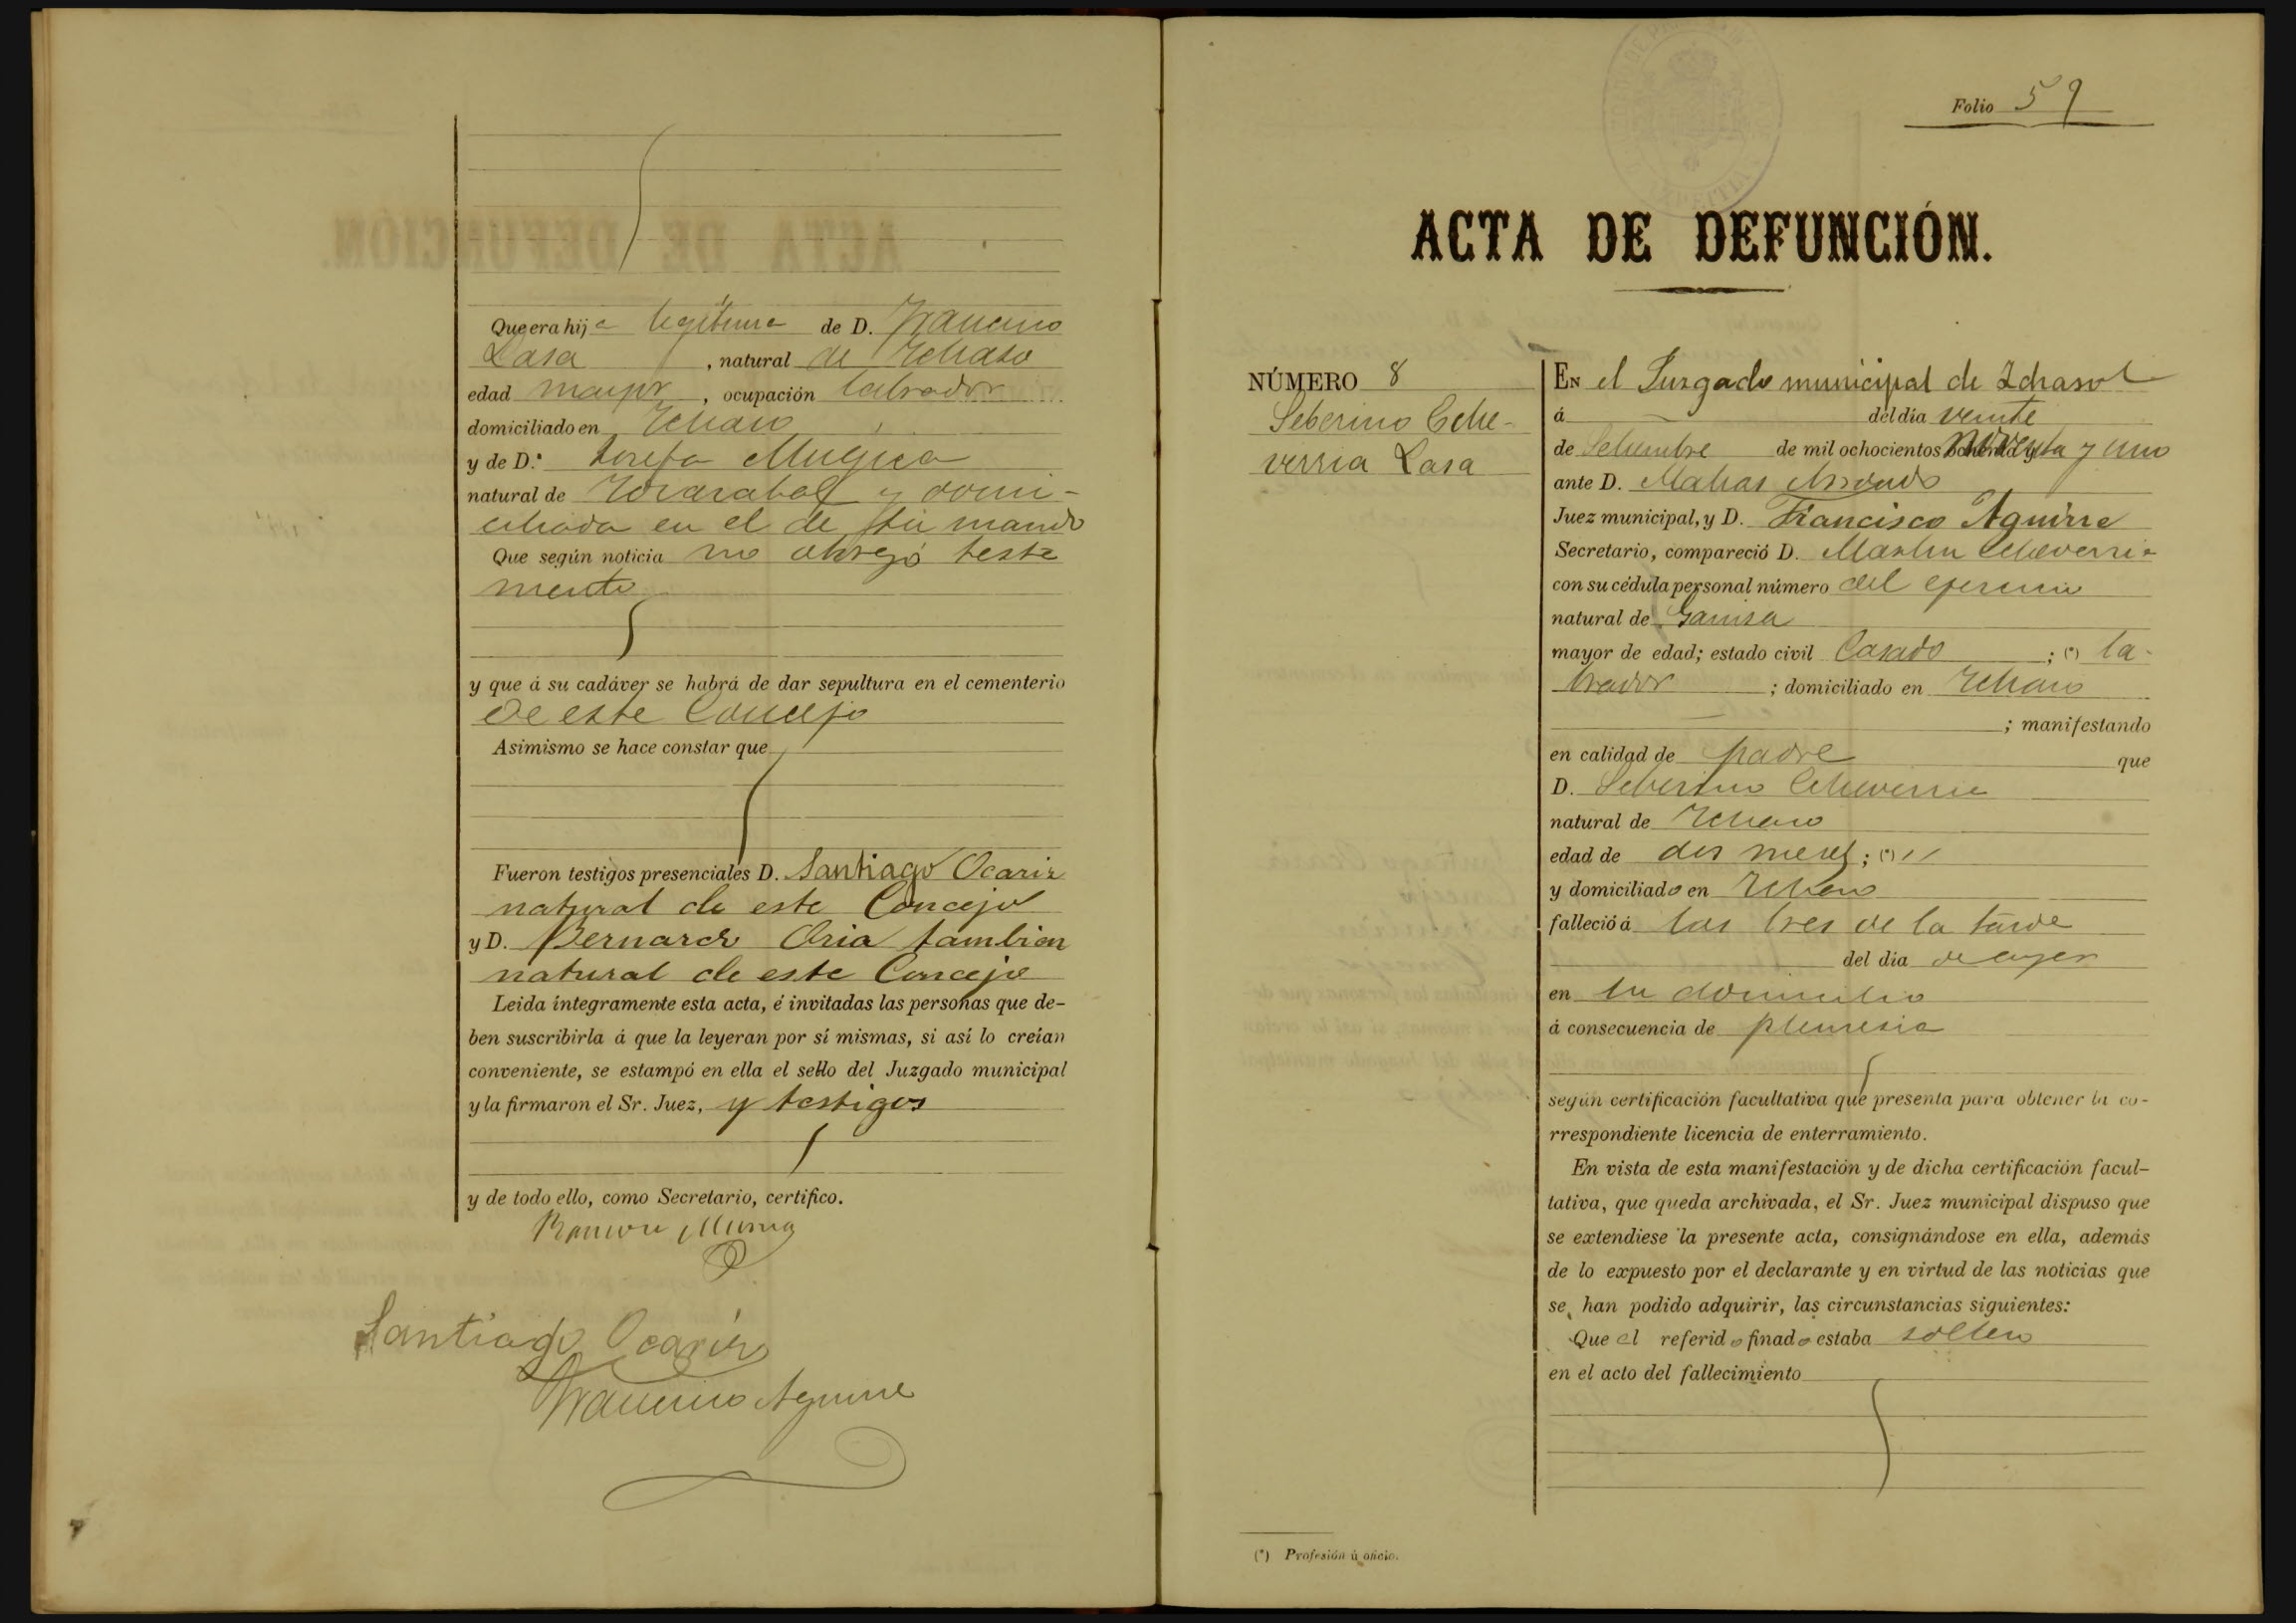 Que era hija legitima de D. Francisco
Lasa, natural de Ichaso
edad mayor, ocupación labrador
domiciliado en Ichaso
y de D.ª Josefa Mugica
natural de y domi-
ciliada en el de su marido
Que según noticia no otorgó testa
mento
y que á su cadáver se habrá de dar sepultura en el cementerio
de este Concejo
Asimismo se hace constar que
Fueron testigos presenciales D. Santiago Ocariz
natural de este Concejo
y D. Bernardo Oria tambien
natural de este Concejo
Leida íntegramente esta acta, é invitadas las personas que de-
ben suscribirla á que la leyeran por sí mismas, si así lo creían
conveniente, se estampó en ella el sello del Juzgado municipal
y la firmaron el Sr. Juez, y testigos
y de todo ello, como Secretario, certifico.
Ramon
Santiago Ocariz
Francisco Aguirre
Folio 59
ACTA DE DEFUNCIÓN.
NÚMERO 8
Seberino Eche-
verria Lasa
EN el Juzgado municipal de Ichaso
á del día veinte
de Setiembre de mil ochocientos noventa y uno
ante D. Matias
Juez municipal, y D. Francisco Aguirre
Secretario, compareció D. Martin Echeverria
con su cédula personal número del ejercicio
natural de
mayor de edad; estado civil Casado ; (*) la-
brador ; domiciliado en Ichaso
; manifestando
en calidad de padre que
D. Seberino Echeverria
natural de Ichaso
edad de dos meses; (*) "
y domiciliado en Ichaso
falleció á las tres de la tarde
del día de ayer
en su domicilio
á consecuencia de pleuresia
según certificación facultativa que presenta para obtener la co-
rrespondiente licencia de enterramiento.
En vista de esta manifestación y de dicha certificación facul-
tativa, que queda archivada, el Sr. Juez municipal dispuso que
se extendiese la presente acta, consignándose en ella, además
de lo expuesto por el declarante y en virtud de las noticias que
se han podido adquirir, las circunstancias siguientes:
Que el referido finado estaba soltero
en el acto del fallecimiento
(*) Profesión ú oficio.